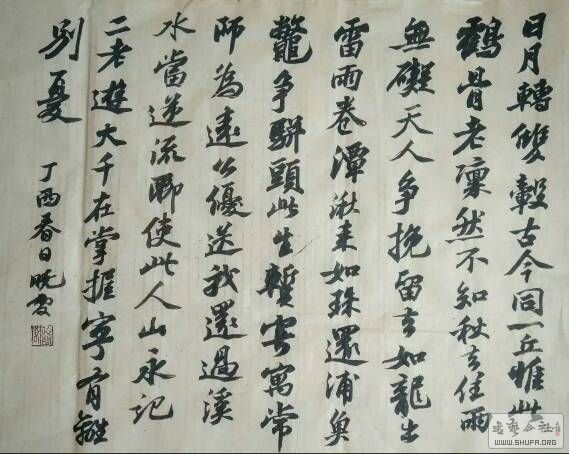 日月轉雙轂古今同一丘惟此
鶴骨老凜然不知秋去住兩
無礙天人争挽留去如龍出
雷雨卷潭湫来如珠還浦魚
鱉争駢頭此生暫寄寓常
師為遠公優送我還過溪
水當逆流聊使此人山永記
二老遊大千在掌握寧有離
別憂
丁酉春日晓霞
WWW.SHUFA.ORG